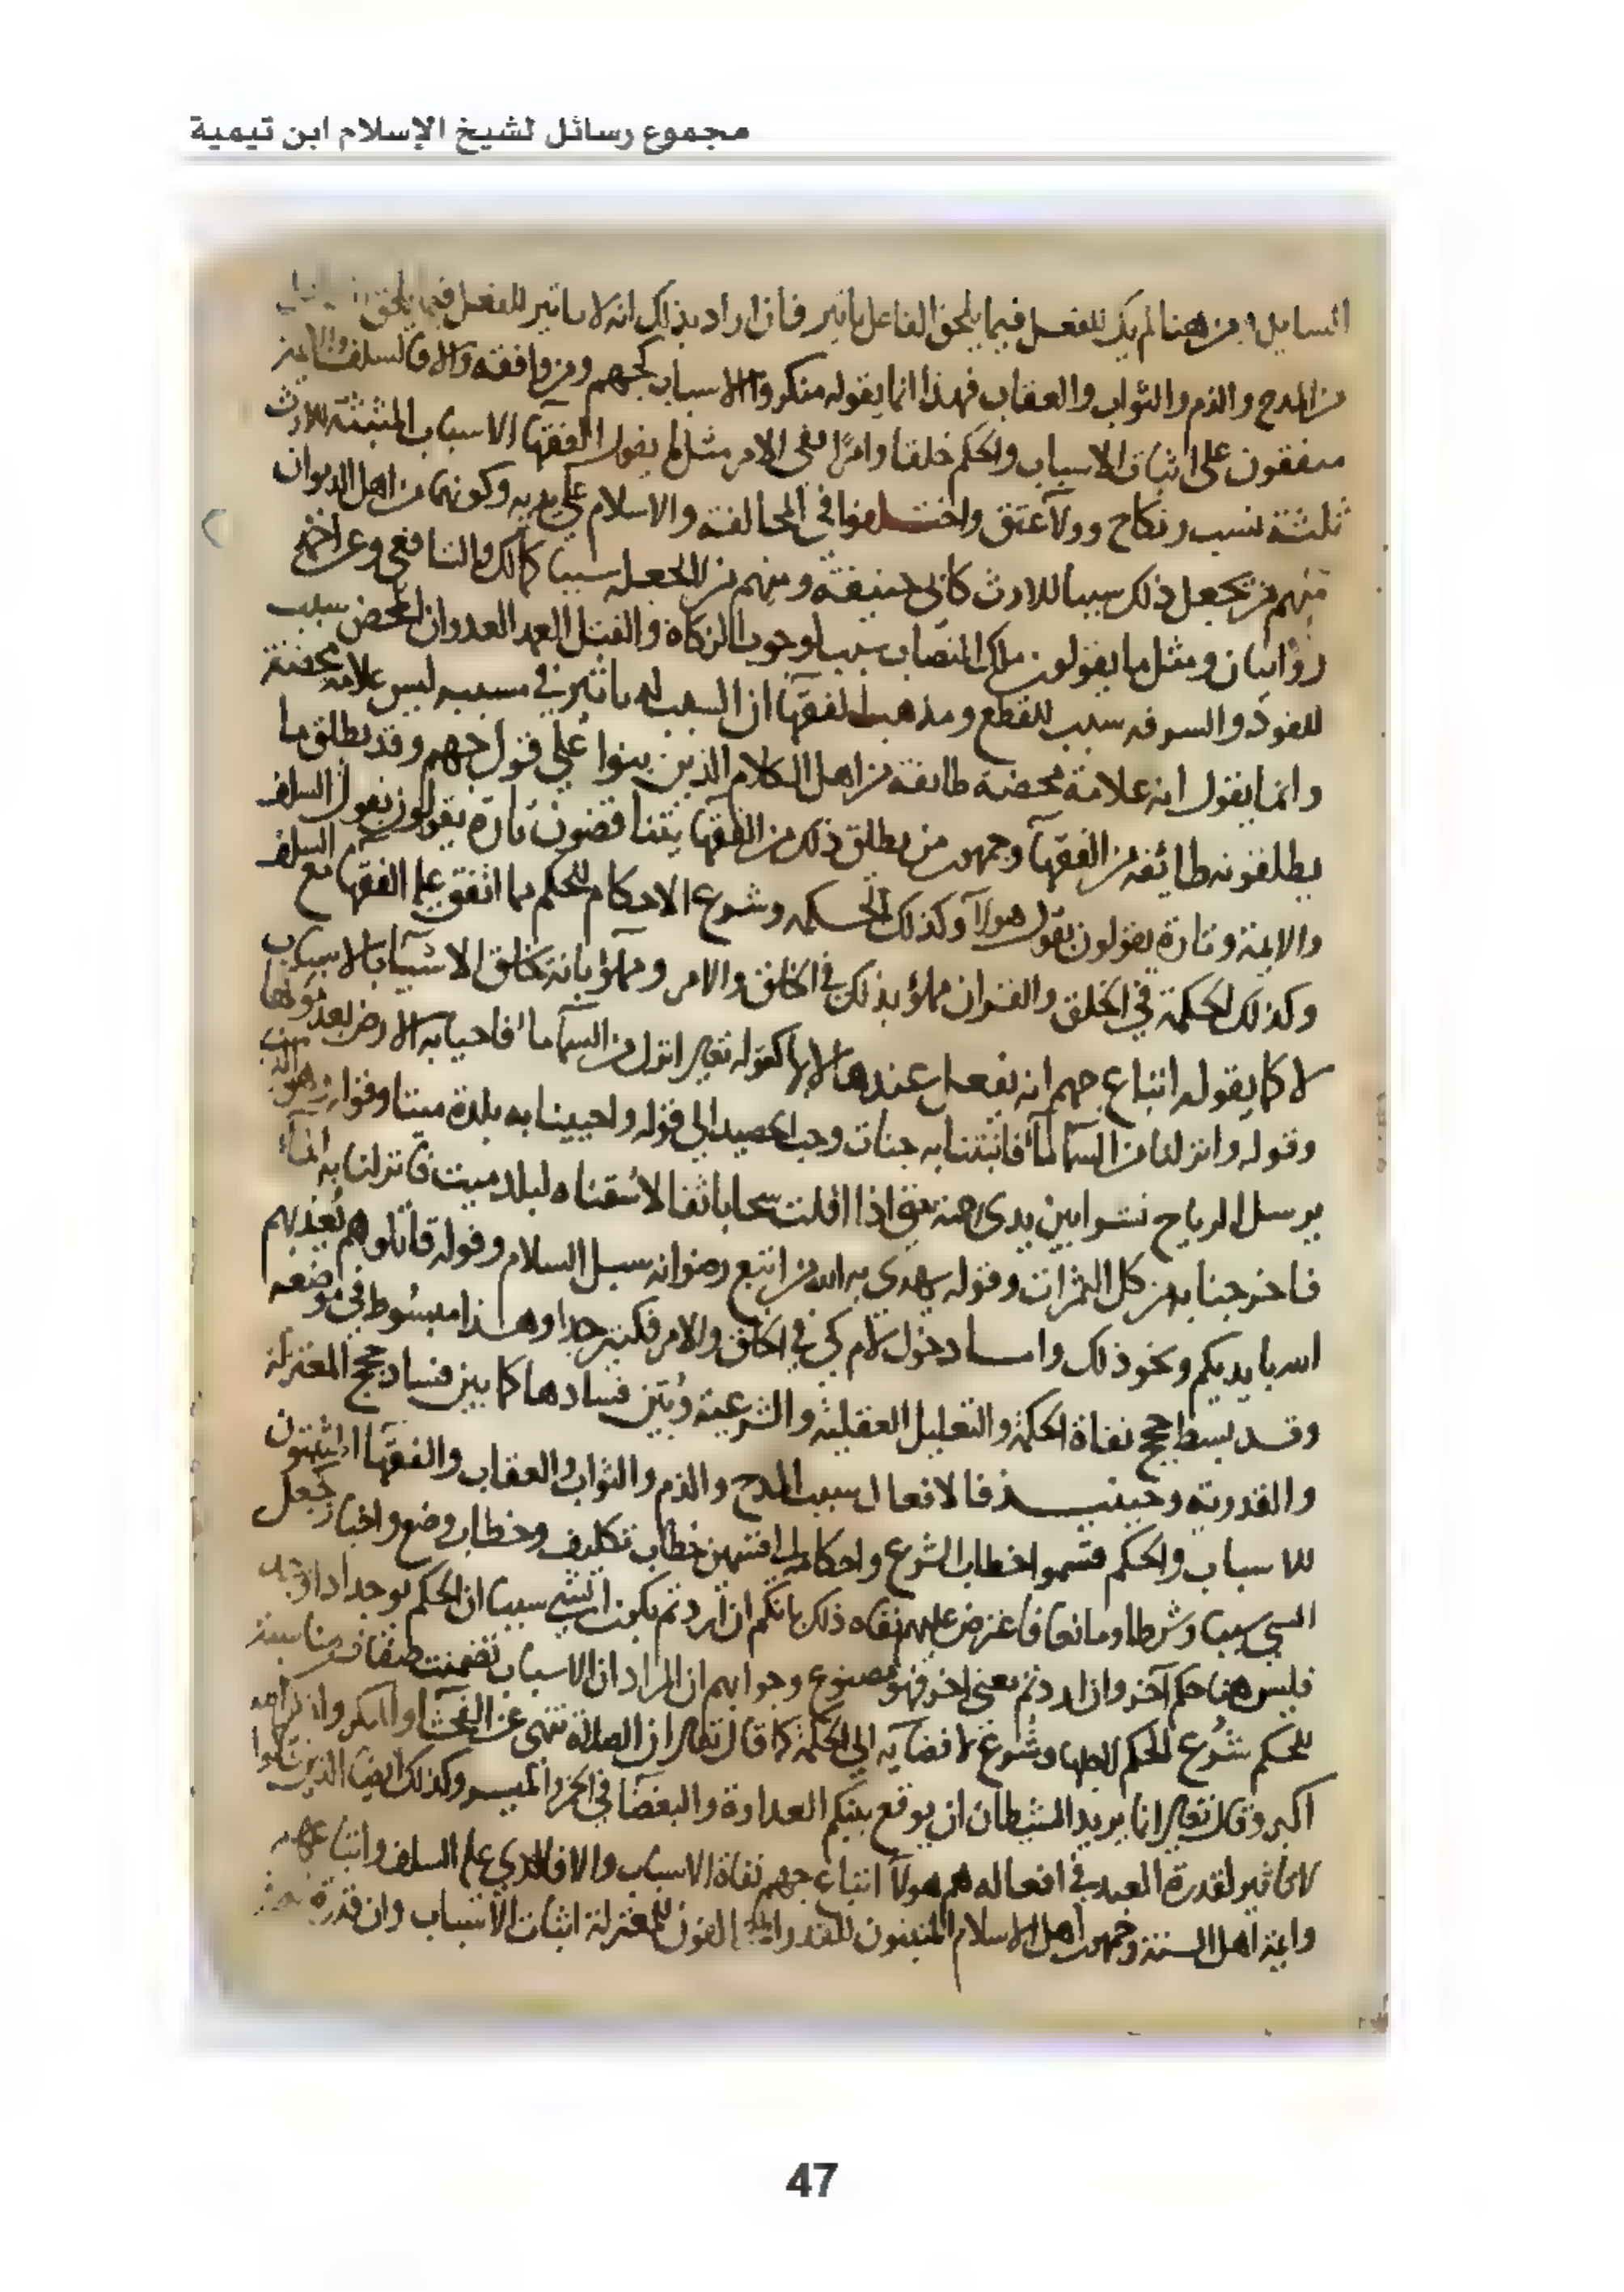 مجموع رسائل لشيخ الإسلام ابن تيمية
السايل من هنا لم يكن للفعل فيما يلحق الفاعل تاثير فان اراد بذلك انه لا تاثير للفعل فيما يلحق
من المدح والذم والثواب والعقاب فهذا انما يقوله منكروا الاسباب كجهم ومن وافقه والا فالسلف والايمة
متفقون على اثبات الاسباب والحكم خلقا وامرا ففي الامر مثل ما يقول الفقها الاسباب المثبتة للارث
ثلثة نسب ونكاح وولآ عتق واختلفوا في المحالفة والاسلام على يديه وكونهما من اهل الديوان
منهم من يجعل ذلك سببا للارث كابي حنيفة ومنهم من لا يجعله سببا كمالك والشافعي وعن احمد
روايتان ومثل ما يقولون ملك النصاب سبب لوجوب الزكاة والقتل العمد العدوان المحض سبب
للقود والسرقه سبب للقطع ومذهب الفقها ان السبب له تاثير في مسببه ليس علامة محضة
وانما يقول انه علامة محضة طايفة من اهل الكلام الذين بنوا على قول جهم وقد يطلق ما
يطلقونه طائفة من الفقهآ وجمهور من يطلق ذلك من الفقها يتناقضون تارة يقولون بقول السلف
والايمة وتارة يقولون بقول هولآ وكذلك الحكمه وشرع الاحكام للحكم مما اتفق عليه الفقها مع السلف
وكذلك الحكمة في الخلق والقران مملؤ بذلك في الخلق والامر ومملؤ بانه يخلق الاشيآ بالاسباب
لا كما يقوله اتباع جهم انه يفعل عندها لا بها كقوله تعالى انزل من السمآ مآ فاحيا به الارض بعد موتها
وقوله وانزلنا من السمآ مآ فانبتنا به جنات وحب الحصيد الى قوله واحيينا به بلدة ميتا وقوله وهو الذي
يرسل الرياح نشرا بين يدي رحمته حتى اذا اقلت سحابا ثقالا سقناه لبلد ميت فانزلنا به المآ
فاخرجنا به من كل الثمرات وقوله يهدي به الله من اتبع رضوانه سبل السلام وقوله قاتلوهم يعذبهم
الله بايديكم ونحو ذلك واما دخول لام كي في الخلق والامر فكثير جدا وهذا مبسوط في موضعه
وقد بسط حجج نفاة الحكمة والتعليل العقلية والشرعية وبين فسادها كما بين فساد حجج المعتزلة
والقدرية وحينيذ فالافعال سبب المدح والذم والثواب والعقاب والفقهآ المثبتون
للاسباب والحكم قسموا خطاب الشرع واحكامه الى قسمين خطاب تكليف وخطاب وضع واخبار كجعل
الشي سببا وشرطا ومانعا فاعترض عليهم نفاه ذلك بانكم ان اردتم بكون الشي سببا ان الحكم يوجد اذا وجد
فليس هنا حكم آخر وان اردتم معنى اخر فهو ممنوع وجوابهم ان المراد ان الاسباب تضمنت صفات مناسبة
للحكم شرع الحكم لاجلها وشرع لافضآيه الى الحكمة كما قال تعالى ان الصلاة تنهى عن الفحشآ والمنكر
اكبر وقال تعالى انما يريد الشيطان ان يوقع بينكم العداوة والبغضآ في الخمر والميسر وكذلك ايضا الذين قالوا
لا تاثير لقدرة العبد في افعاله هم هولآ اتباع جهم نفاة الاسباب والا فالذي عليه السلف واتباعهم
وايمة اهل السنة وجمهور اهل الاسلام المثبتون للقدر المخالفون للمعتزلة اثبات الاسباب وان قدرة
47